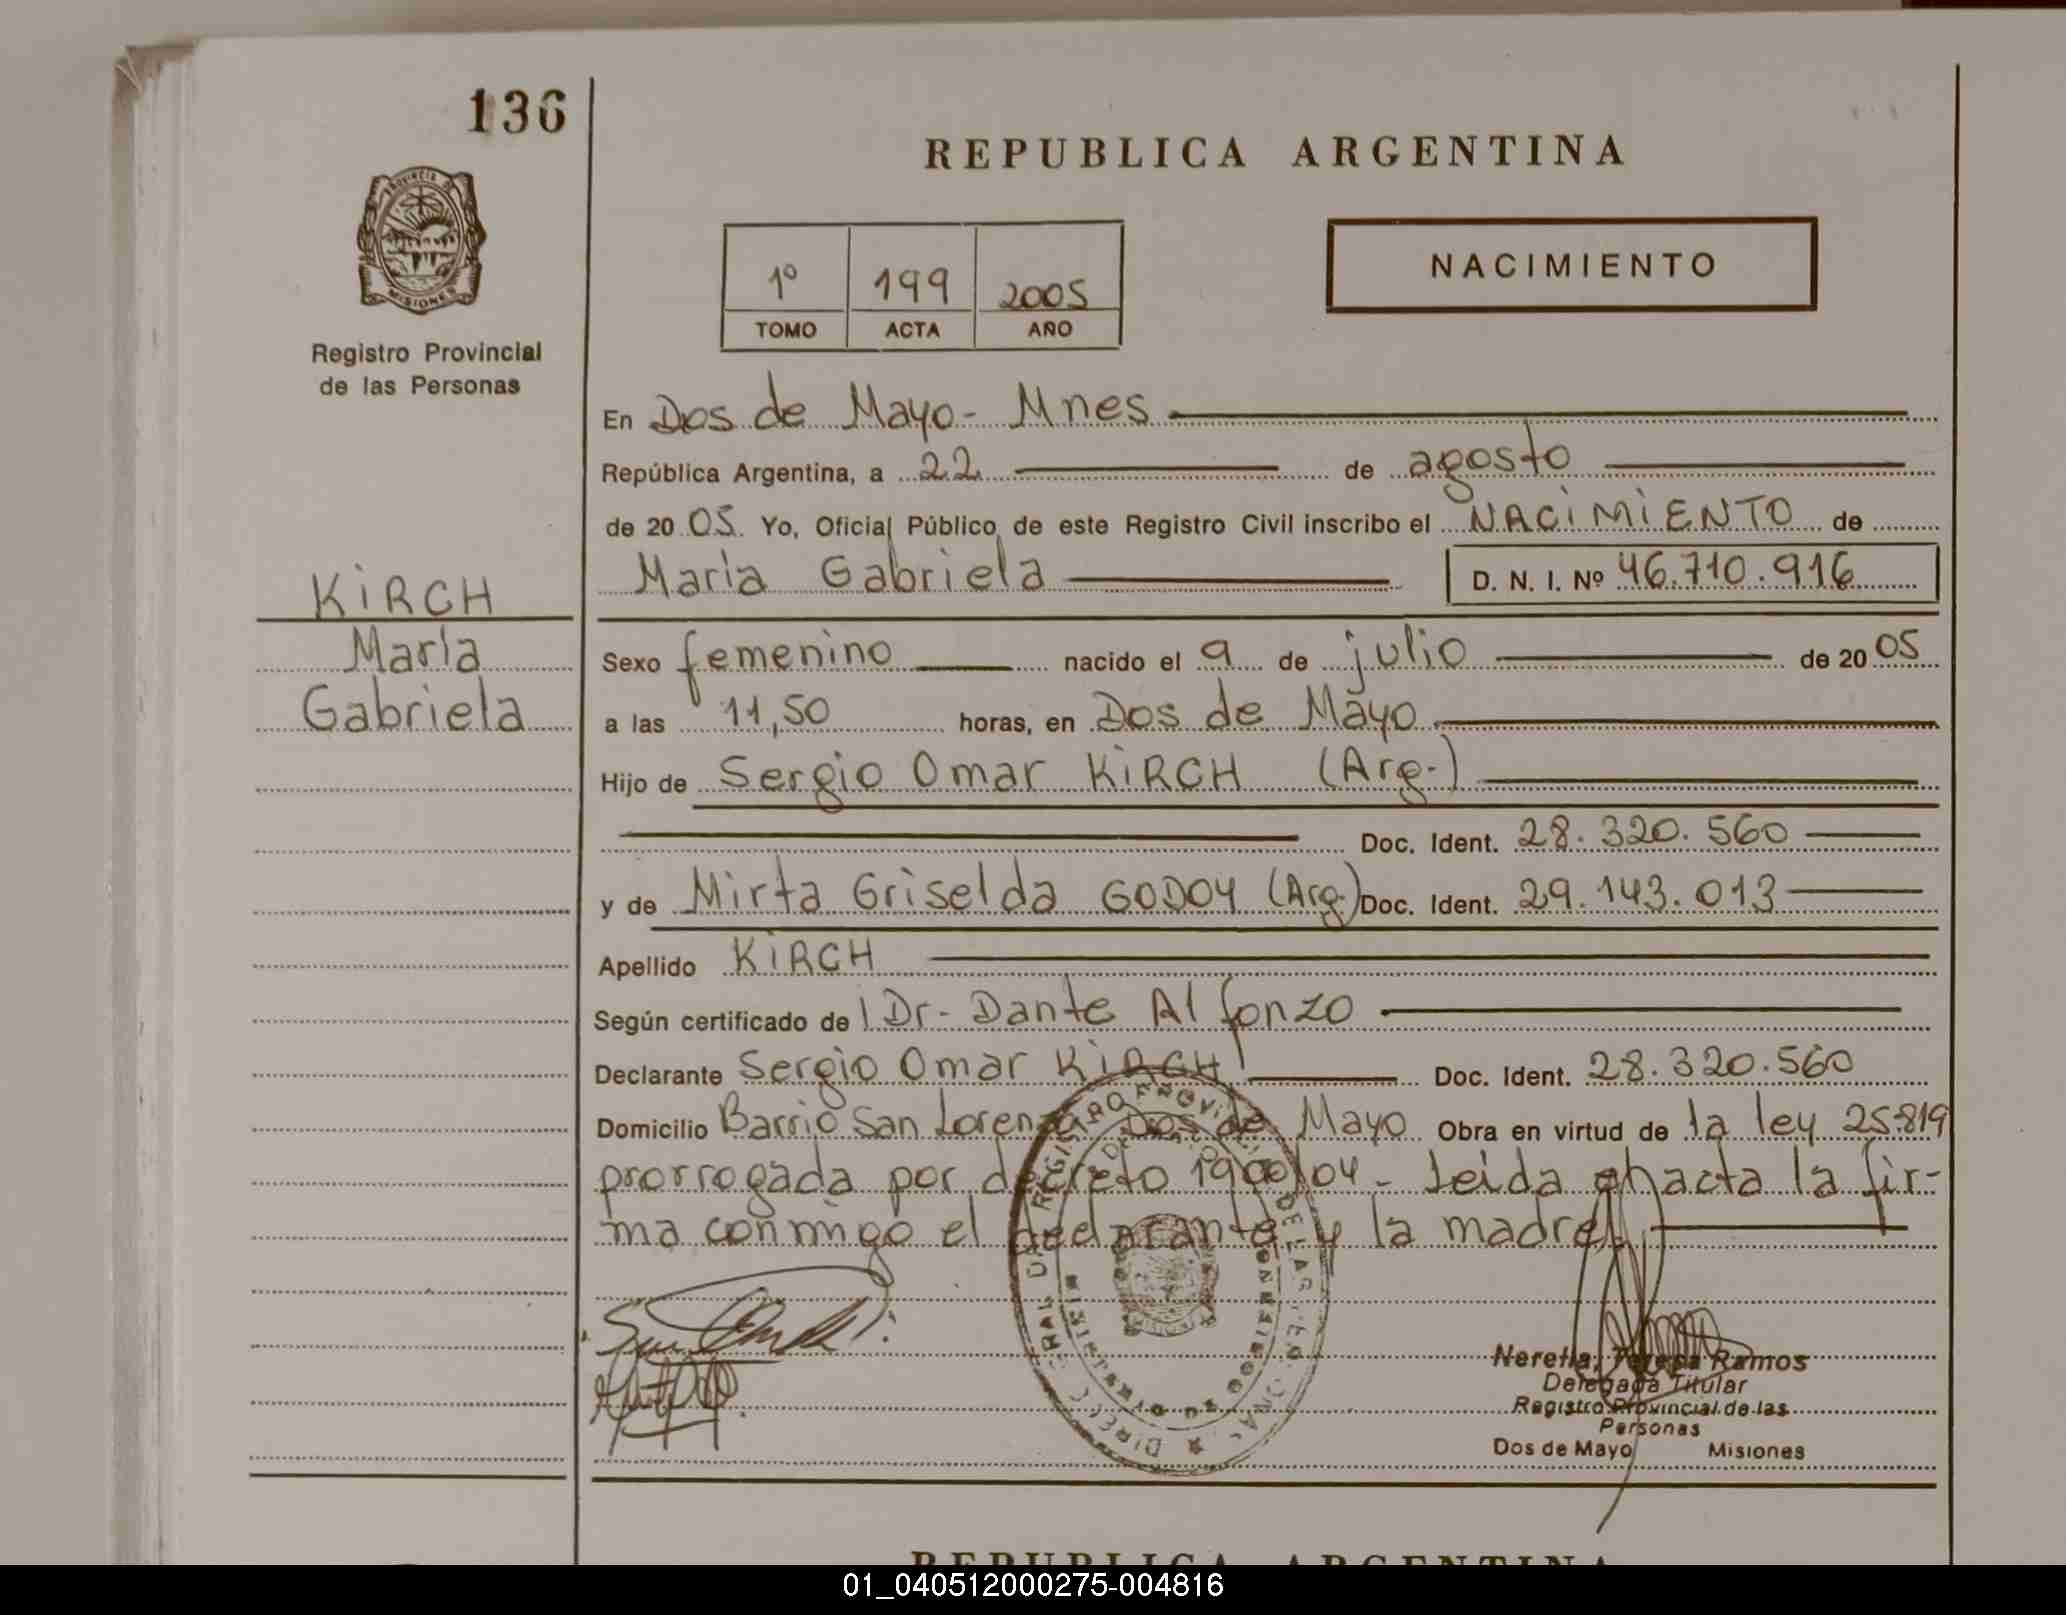 136
REPUBLICA ARGENTINA
PROVINCIA DE
MISIONES
Registro Provincial
de las Personas
NACIMIENTO
1º 199 2005
TOMO ACTA AÑO
En Dos de Mayo - Mnes
República Argentina, a 22 de agosto
de 20 05. Yo, Oficial Público de este Registro Civil inscribo el NACIMIENTO de
María Gabriela D. N. I. Nº 46.710.916
KIRCH
María
Gabriela
Sexo femenino nacido el 9 de julio de 20 05
a las 11,50 horas, en Dos de Mayo
Hijo de Sergio Omar KIRCH (Arg.)
Doc. Ident. 28.320.560
y de Mirta Griselda GODOY (Arg.) Doc. Ident. 29.143.013
Apellido KIRCH
Según certificado de Dr. Dante Alfonzo
Declarante Sergio Omar KIRCH Doc. Ident. 28.320.560
Domicilio Barrio San Lorenzo Dos de Mayo Obra en virtud de la ley 25819
prorrogada por decreto 1900/04 - Leida el acta la fir-
ma conmigo el declarante y la madre
Nerelia Teresa Ramos
Delegada Titular
Registro Provincial de las
Personas
Dos de Mayo Misiones
REPUBLICA ARGENTINA
01_040512000275-004816